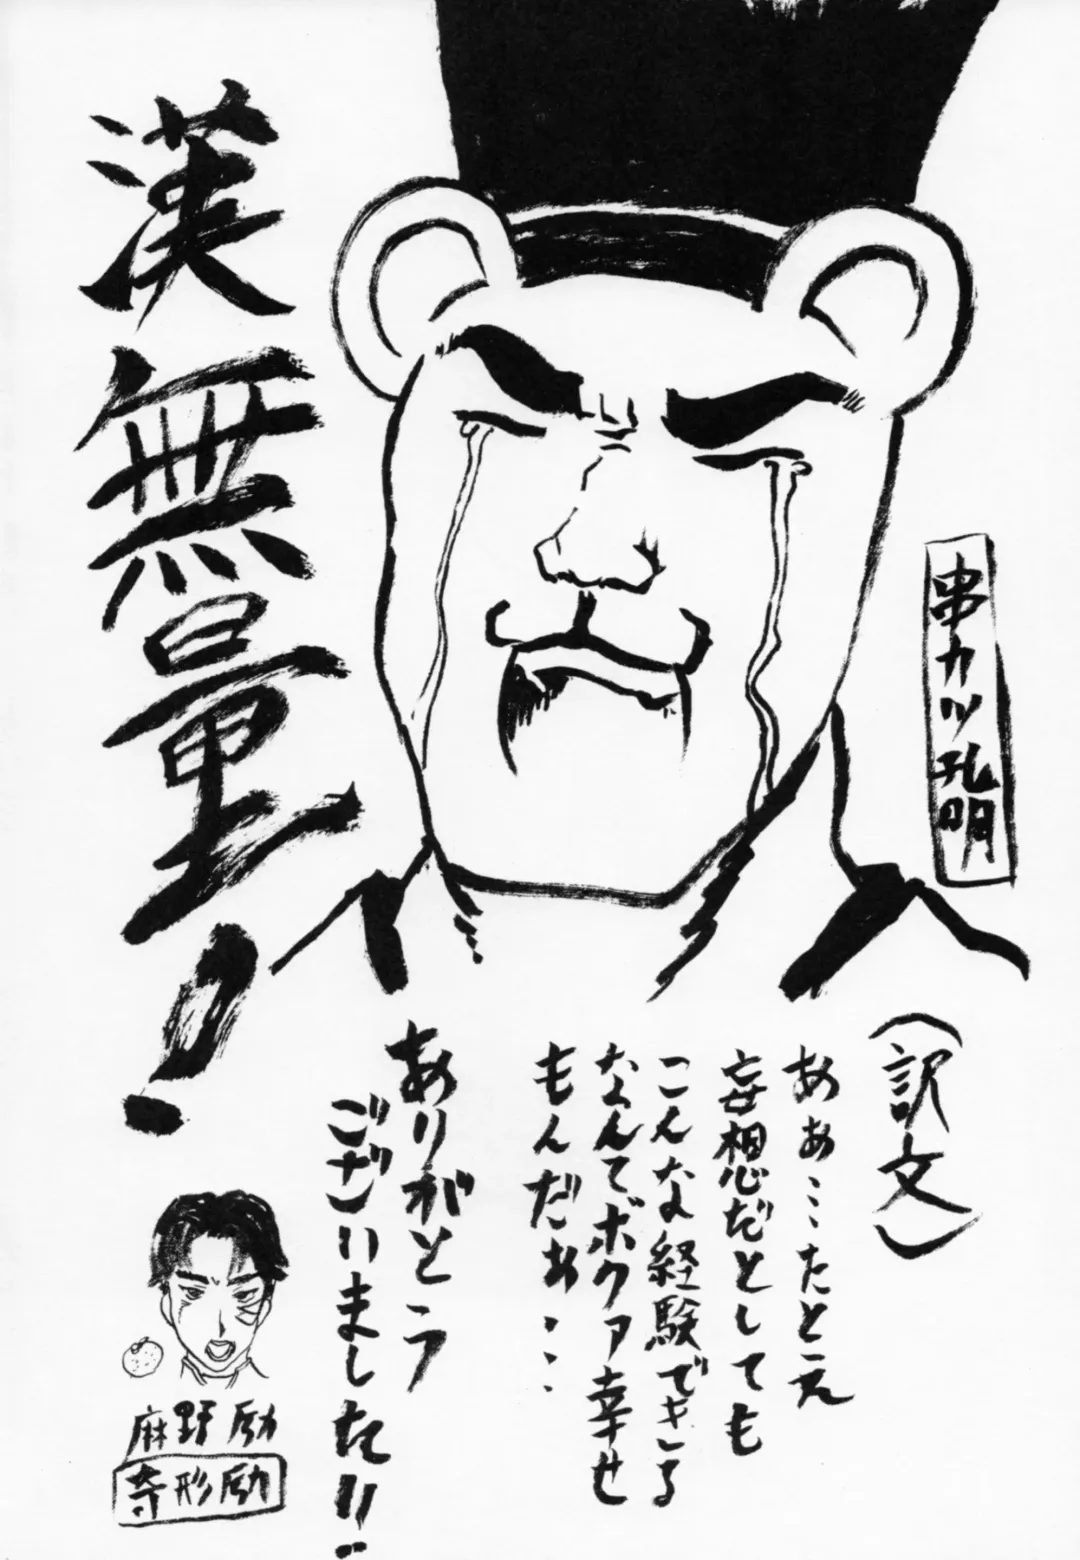 串カツ孔明
漢無量！
（訳文）
ああ…たとえ
妄想だとしても
こんな経験できる
なんてボクァ幸せ
もんだぁ…
ありがとう
ございました!!
麻野励
寺形励